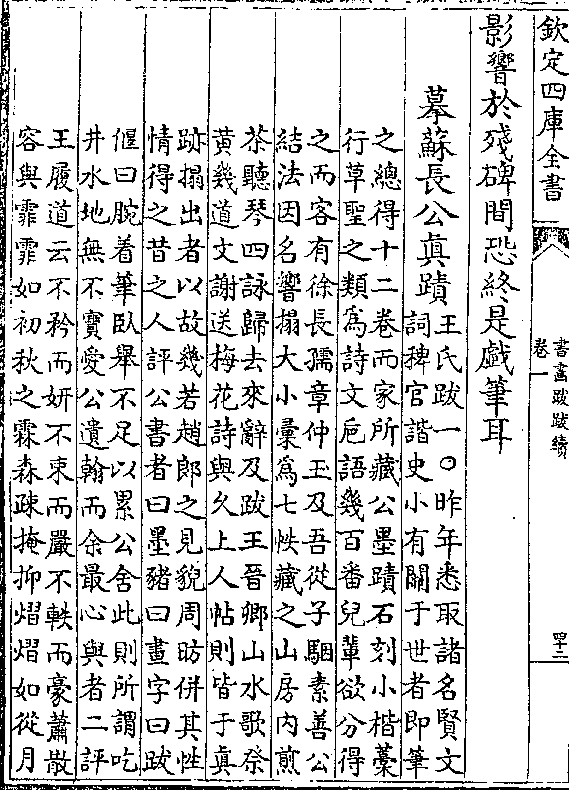 欽定四庫全書
書畫跋跋續
卷一
四十二
影響於殘碑間恐終是戲筆耳
摹蘇長公真蹟
王氏跋一〇昨年悉取諸名賢文
詞稗官諧史小有關于世者即筆
之總得十二卷而家所藏公墨蹟石刻小楷藁
行草聖之類為詩文巵語幾百番兒輩欲分得
之而客有徐長孺章仲玉及吾從子駰素善公
結法因名響搨大小彙為七帙藏之山房內煎
茶聽琴四詠歸去來辭及跋王晉卿山水歌祭
黃幾道文謝送梅花詩與久上人帖則皆于真
跡搨出者以故幾若趙郎之見貌周昉併其性
情得之昔之人評公書者曰墨豬曰畫字曰跋
偃曰腕着筆臥舉不足以累公舍此則所謂吃
井水地無不寶愛公遺翰而余最心與者二評
王履道云不矜而妍不束而嚴不軼而豪蕭散
容與霏霏如初秋之霖森疎掩抑熠熠如從月